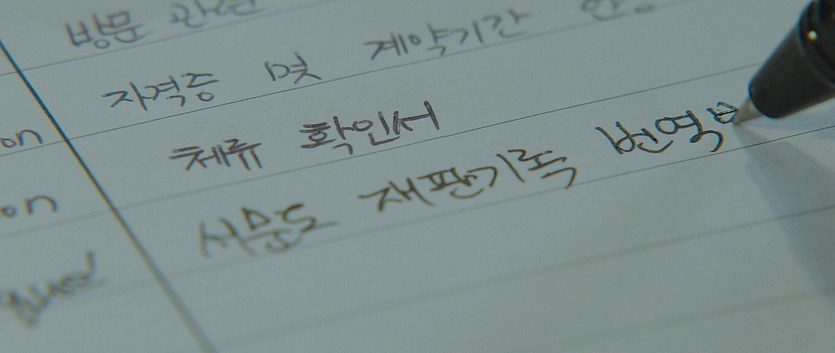 방문 관련
자격증 및 계약기간
on 체류 확인서
on 서문도 재판기록 번역